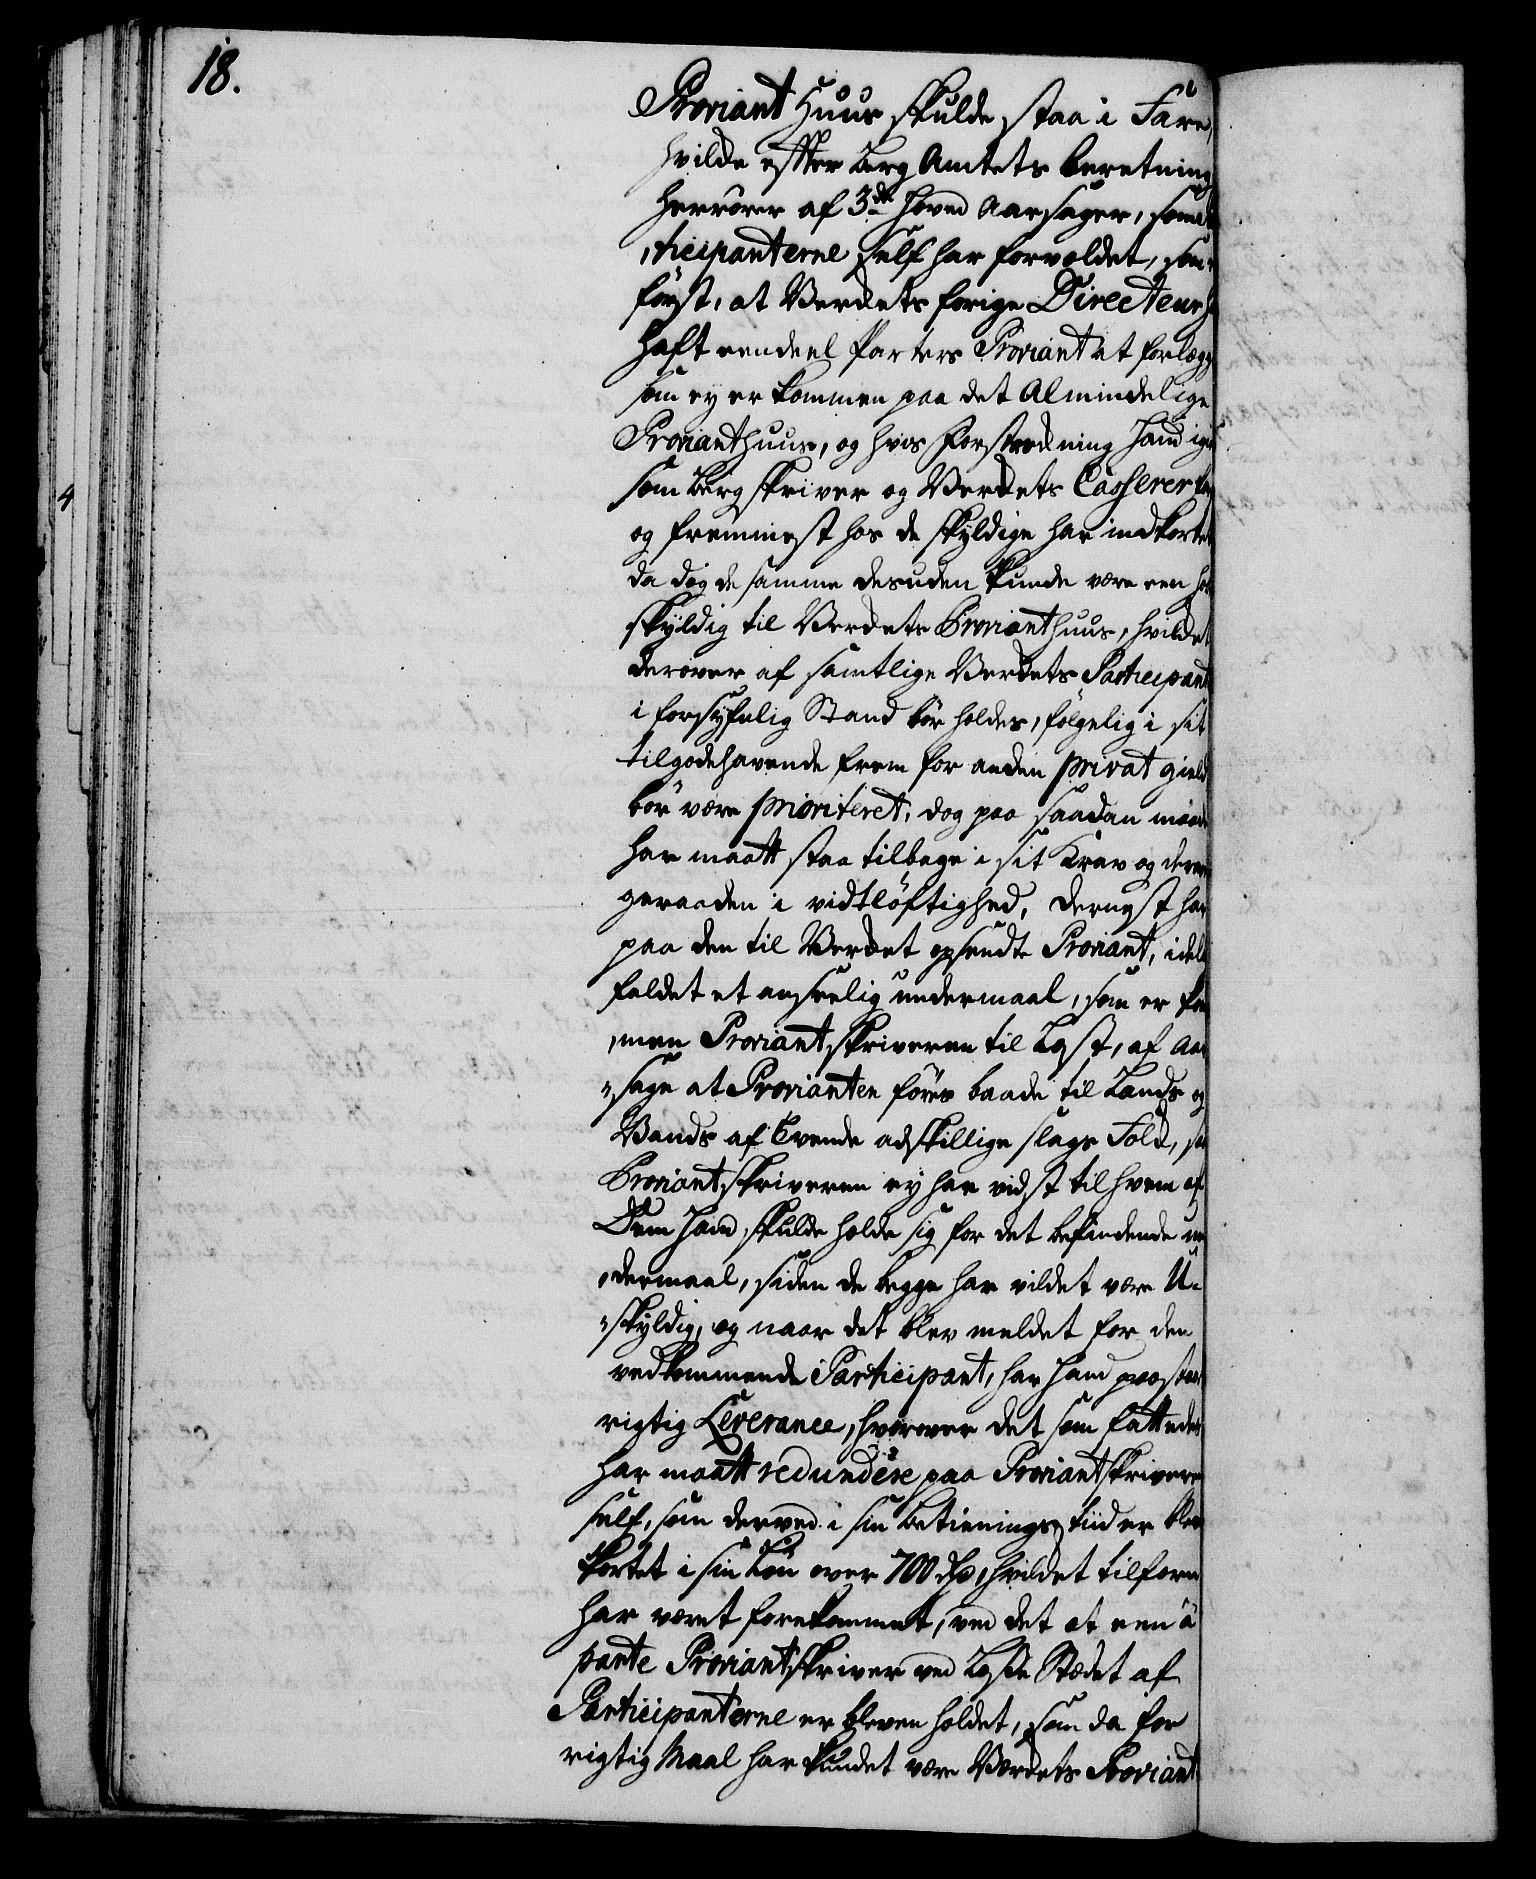 18.
Proviant Huus skulde staa i Fare,
hvilde effter Berg Amtets beretning
herrører af 3de hoved Aarsager, som
,ticipanterne self har forvoldet, som
først, at Verckets forige Directeur
haft eendeel Parters Proviant at forlægge
som ey er kommen paa det Almindelige
Provianthuus, og hvis forstrækning hand igien
som Bergskriver og Verckets Casserer
og fremmest hos de skyldige har indkortet
da dog de samme desuden kunde være een hob
skyldig til Verckets Provianthuus, hvilcket
derover af samtlige Verckets Participant
i forsyfnlig Stand bør holdes, følgelig i sit
tilgodehavende frem for anden privat gield
bør være prioriteret, dog paa saadan maade
har maatt staa tilbage i sit Krav og derover
geraaden i vidtløftighed, dernest har
paa den til Vercket opsendte Proviant,
faldet et anseelig undermaal, som er kom
,men Proviantskriveren til Last, af Aar
"sage at Provianten føres baade til Lands og
Vands af tvende adskillige slags Folck, saa
Proviantskriveren ey har vidst til hvem af
Dem hand skulde holde sig for det befindende un
,dermaal, siden de begge har vildet være U-
"skyldig, og naar det blev meldet for den
vedkommende Participant, har hand præsteret
rigtig Leverance, hvorover det som fattedes
har maatt redundere paa Proviantskriveren
self, som derved i sin betienings tiid er blev
kortet i sin Løn over 700 rdr, hvilcket tilforn
har været forekommet, ved det at een a
parte Proviantskriver ved Lade Stædet af
Participanterne er bleven holdet, som da for
rigtig Maal har kundet være Verckets Proviant